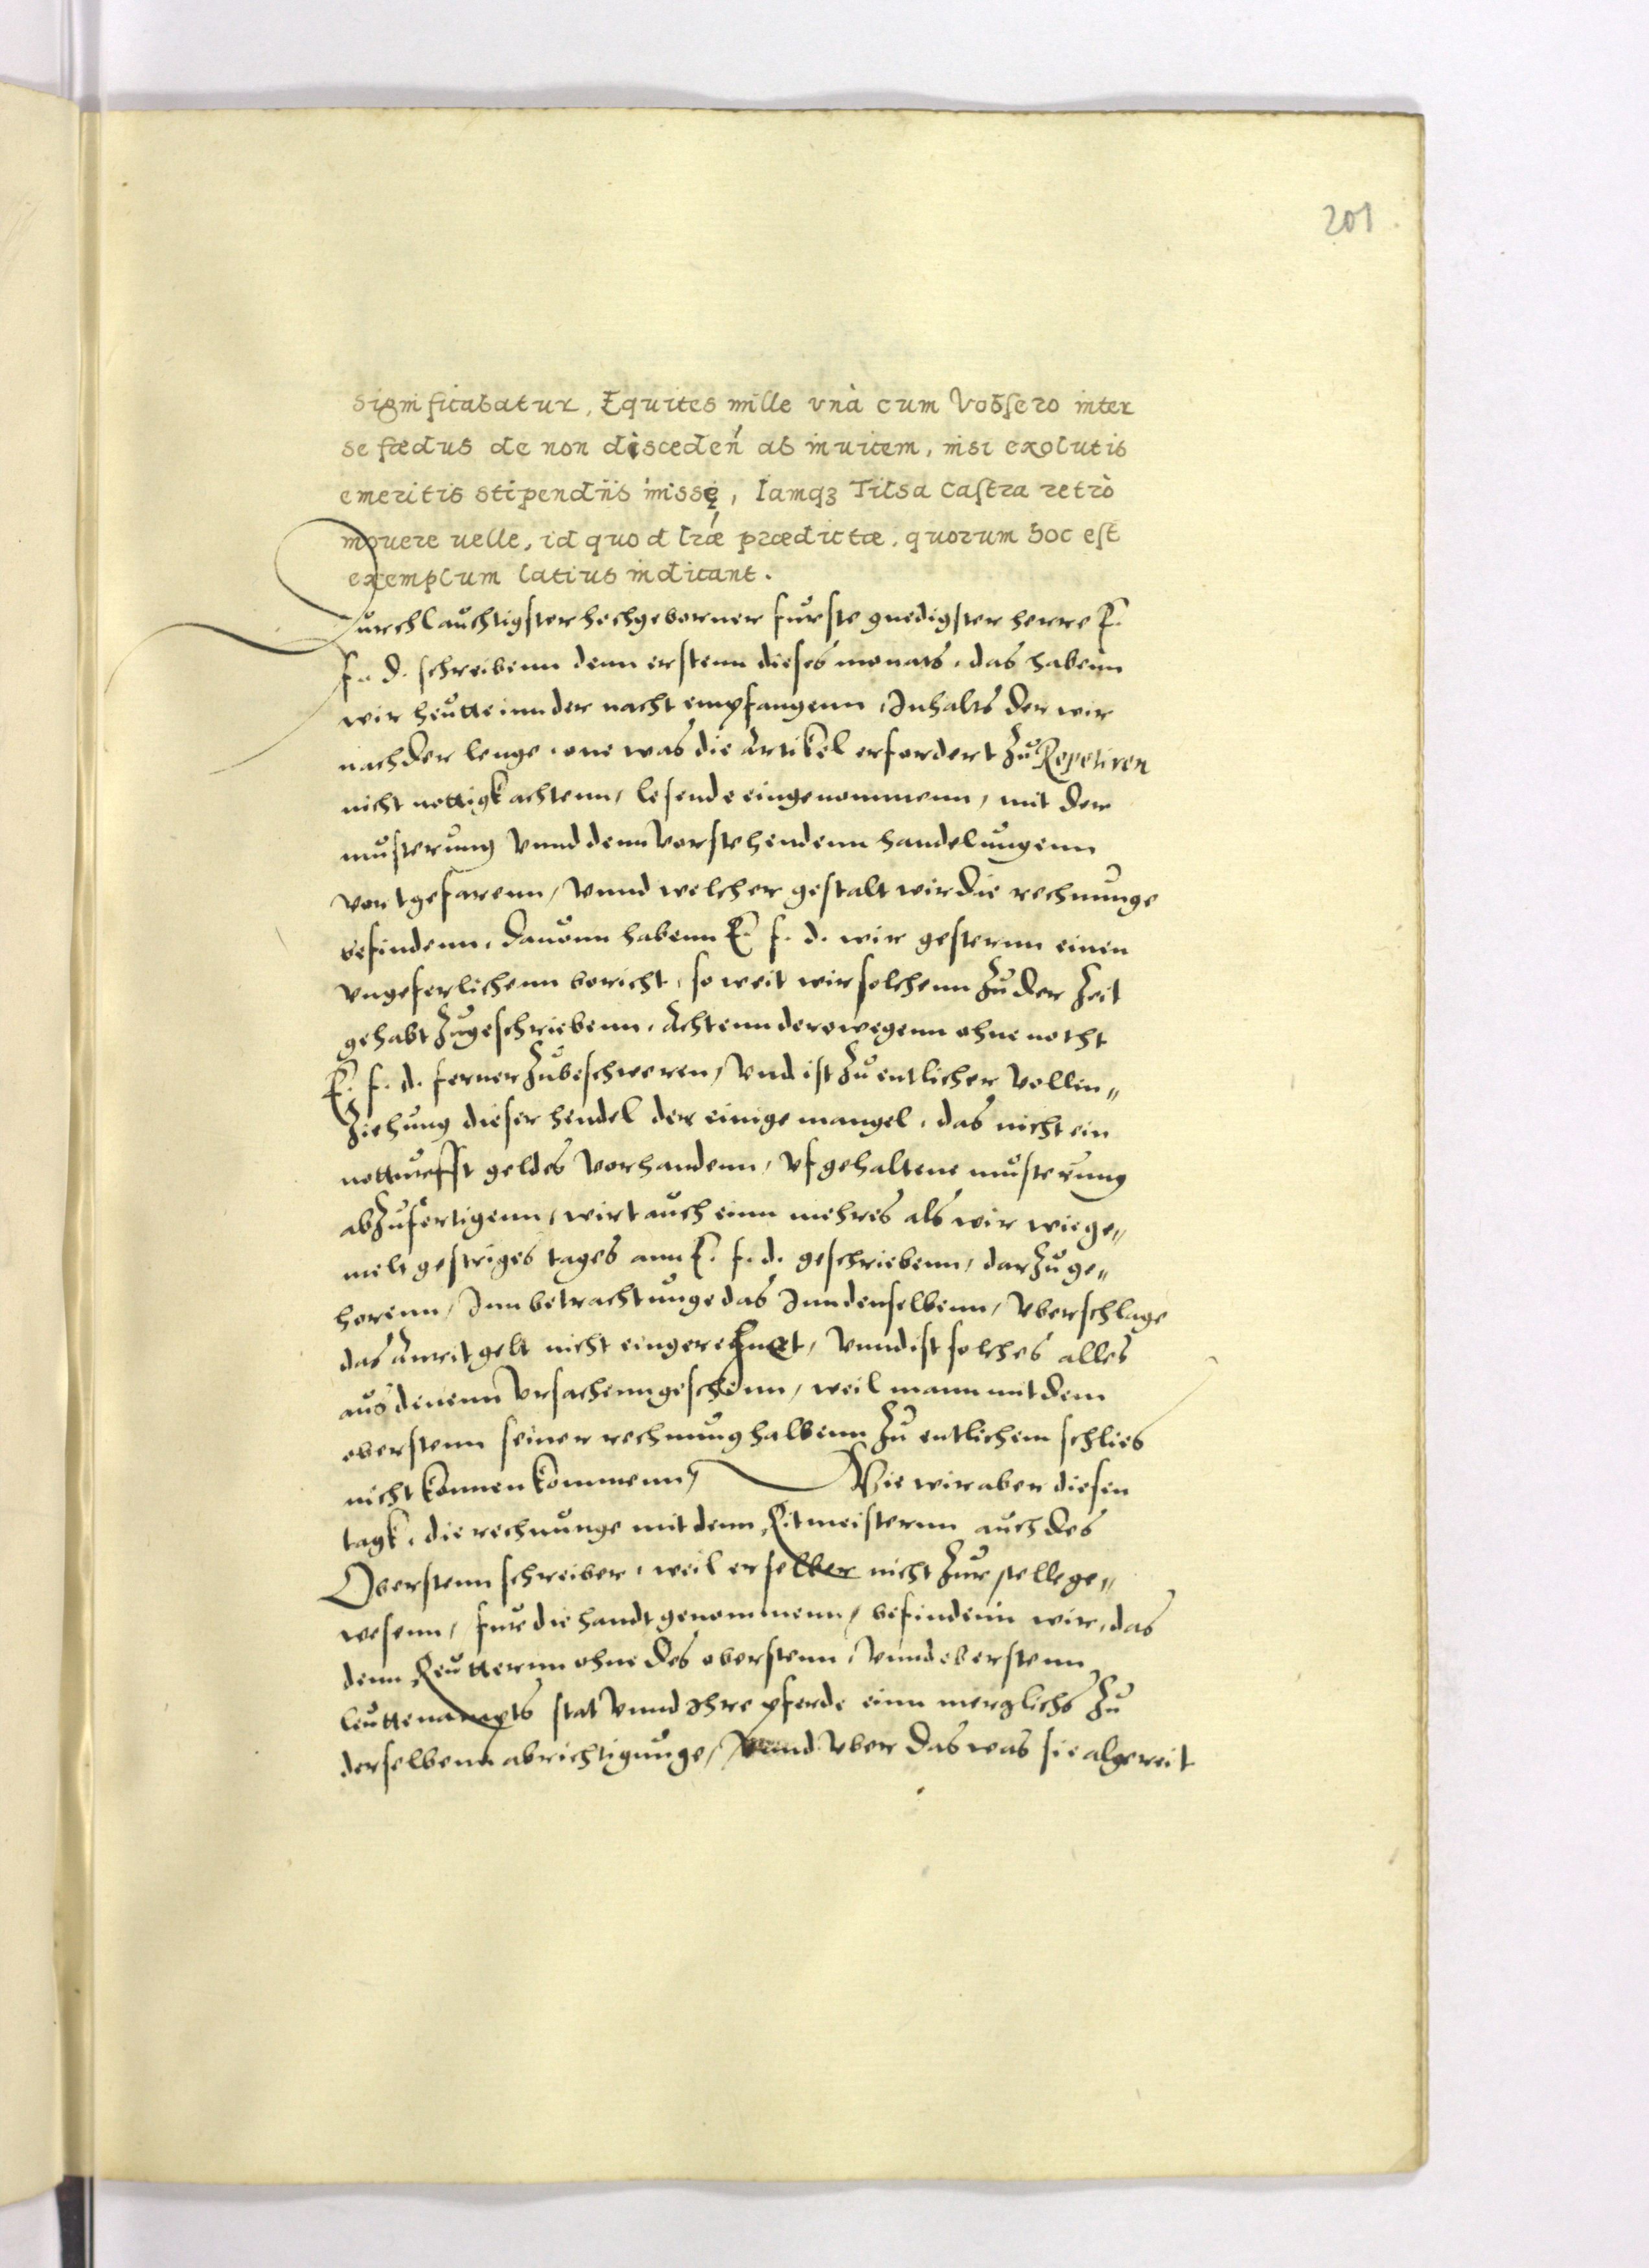 201
significabatur, Equites mille vnà cum Vobsero inter
se fœdus de non disceden̄ ab inuicem, nisi exolutis
emeritis stipendiis inisse, Iamqȝ Tilsa castra retrò
mouere uelle, id quod l̄ræ prædictæ, quorum hoc est
exemplum latius indicant.
Durchlauchtigster hochgeborner furste gnedigster herre E.
f. d. schreibenn denn erstenn dieses monats, das habenn
wir heutte inn der nacht empfangenn, Inhalts der wir
nach der lenge, one was die artikel erfordert zu Repetiren
nicht nottigk achtenn, lesende eingenommenn, mit der
musterung vnnd denn vorstehendenn handelungenn
vortgefarenn, vnnd welcher gestalt wir die rechnunge
befindenn, dauonn habenn E. f. d. wir gesternn einen
vngeferlichenn bericht, so weit wir solchenn zu der zeit
gehabt zugeschriebenn, Achtenn derowegenn ohne notht
E. f. d. ferner zubeschweren, vnd ist zu entlicher vollen„
ziehung dieser hendel der einige mangel, das nicht ein
notturfft geldes vorhandenn, vf gehaltene musterung
abzufertigenn, wirt auch einn mehres als wir wie ge„
melt gestriges tages ann E. f. d. geschriebenn, darzu ge„
horenn, Inn betrachtunge das Inn denselbenn, vberschlage
das Anrit gelt nicht eingerechnet, vnnd ist solches alles
aus denenn vrsachenn geschenn, weil mann mit dem
oberstenn seiner rechnung halbenn zu entlichem schlies
nicht konnen kommenn, Wie wir aber diesen
tagk, die rechnunge mit denn Ritmeisternn auch des
Oberstenn schreiber, weil er selber nicht zur stelle ge„
wesenn, fur die handt genommenn, befindenn wir, das
denn Reutternn ohne des oberstenn, vnnd oberstenn
leuttenampts stat vnnd Ihre pferde einn merglichs zu
derselbenn abrichtigunge, vnnd vber das was sie algereit